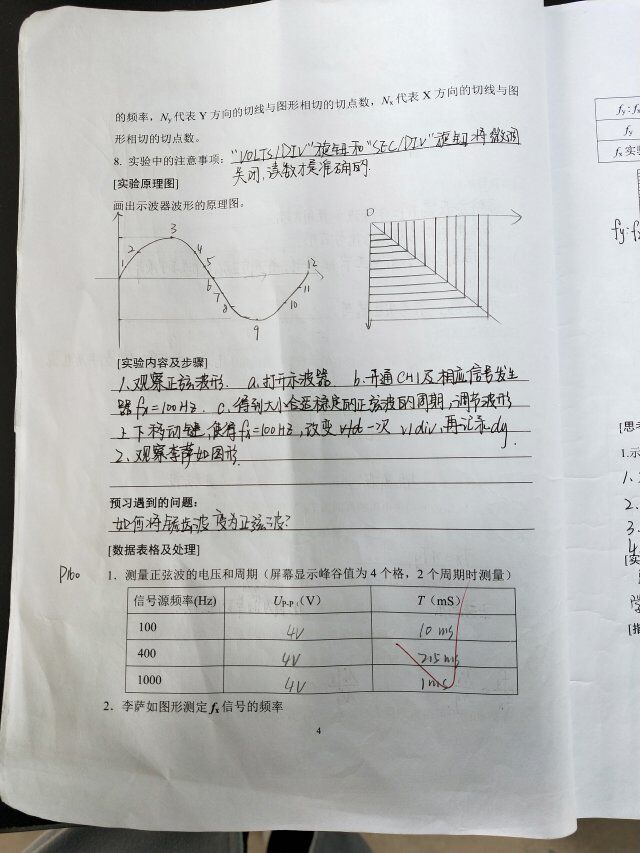 的频率，Ny 代表 Y 方向的切线与图形相切的切点数，Nx 代表 X 方向的切线与图
形相切的切点数。
8. 实验中的注意事项："VOLTS/DIV"旋钮和"SEC/DIV"旋钮将微调
关闭，读数才是准确的.
[实验原理图]
画出示波器波形的原理图。
1 2 3 4 5 6 7 8 9 10 11 12
[实验内容及步骤]
1、观察正弦波形. a.打开示波器 b.开通CH1及相应信号发生
器fx=100Hz. c.得到大小合适稳定的正弦波的周期，调节波形
上下移动键，使得fx=100Hz，改变 一次 v/div，再记录dy.
2、观察李萨如图形.
预习遇到的问题：
如何将锯齿波变为正弦波？
[数据表格及处理]
P160
1．测量正弦波的电压和周期（屏幕显示峰谷值为 4 个格，2 个周期时测量）
信号源频率(Hz) UP-P (V) T（mS）
100 4V 10 ms
400 4V 2.5 ms
1000 4V 1 ms
2．李萨如图形测定 fx 信号的频率
4
fy:fx
fy
fx 实
fy:fx
[思
1.示
1、
2.
3.
4.
[实
[指